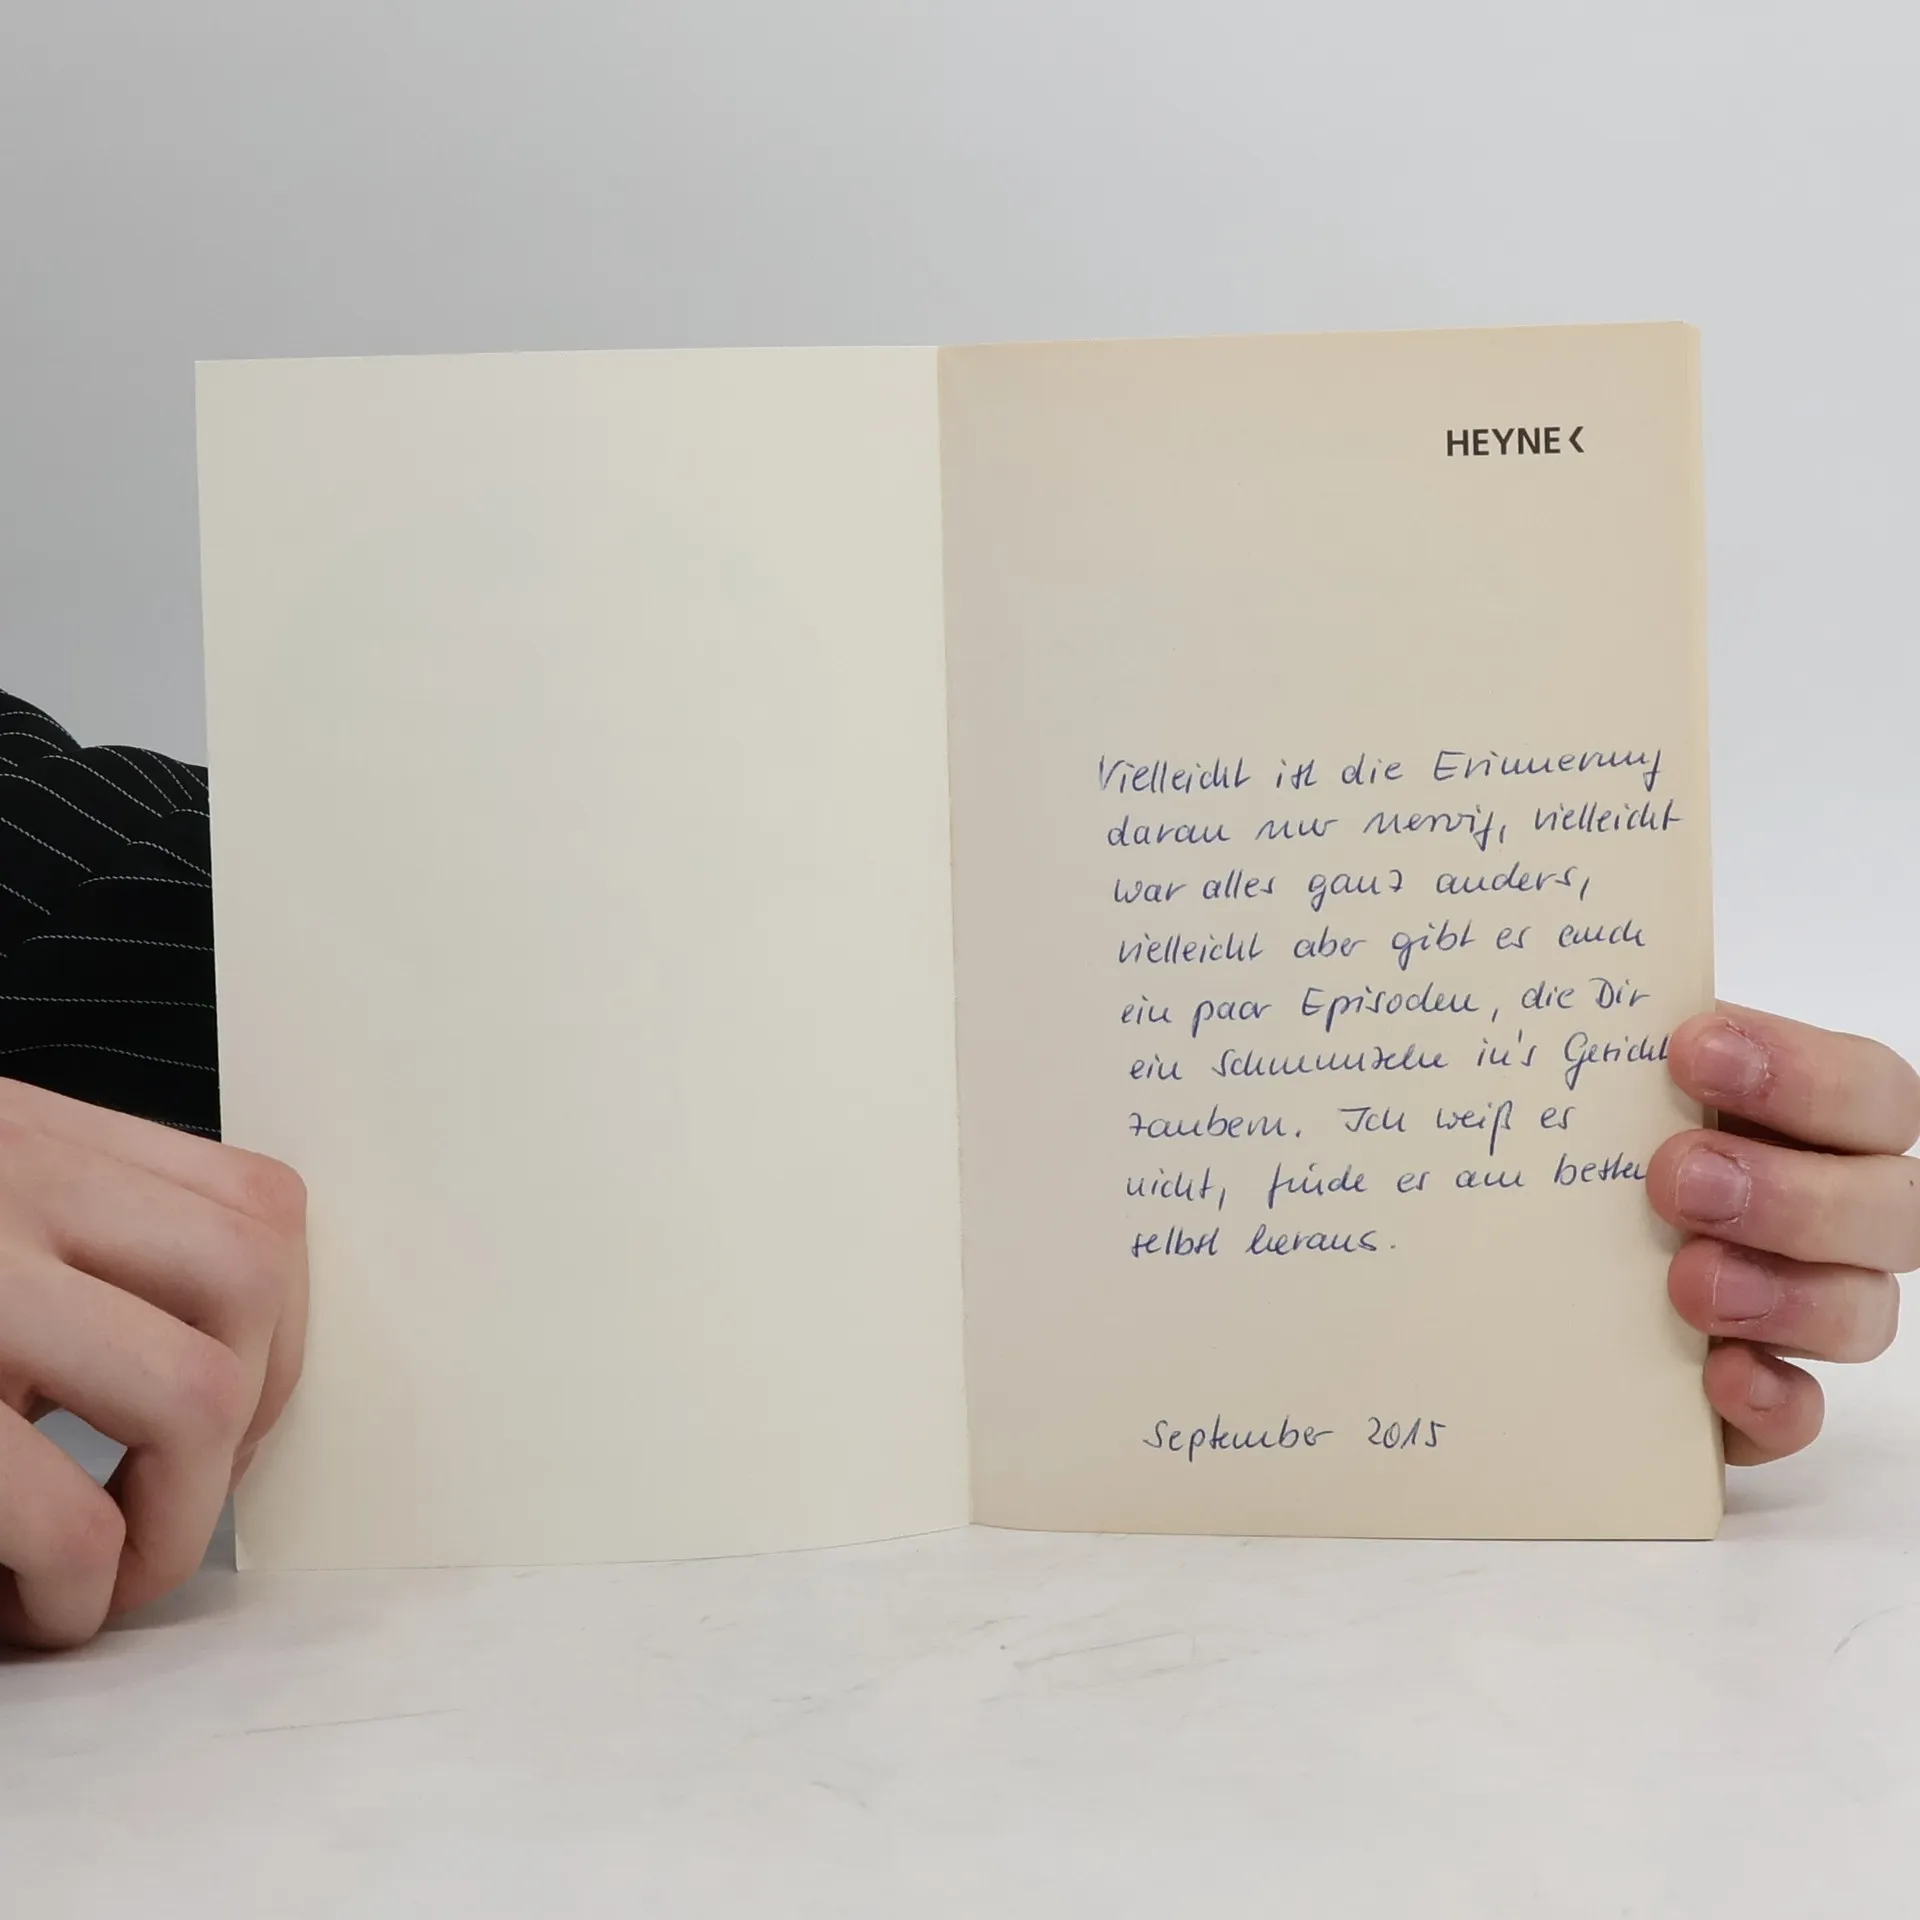 HEYNE <
Vielleicht ist die Erinnerung
daran nur nervig, vielleicht
war alles ganz anders,
vielleicht aber gibt es auch
ein paar Episoden, die Dir
ein Schmunzeln in's Gesicht
zaubern. Ich weiß es
nicht, finde es am besten
selbst heraus.
September 2015